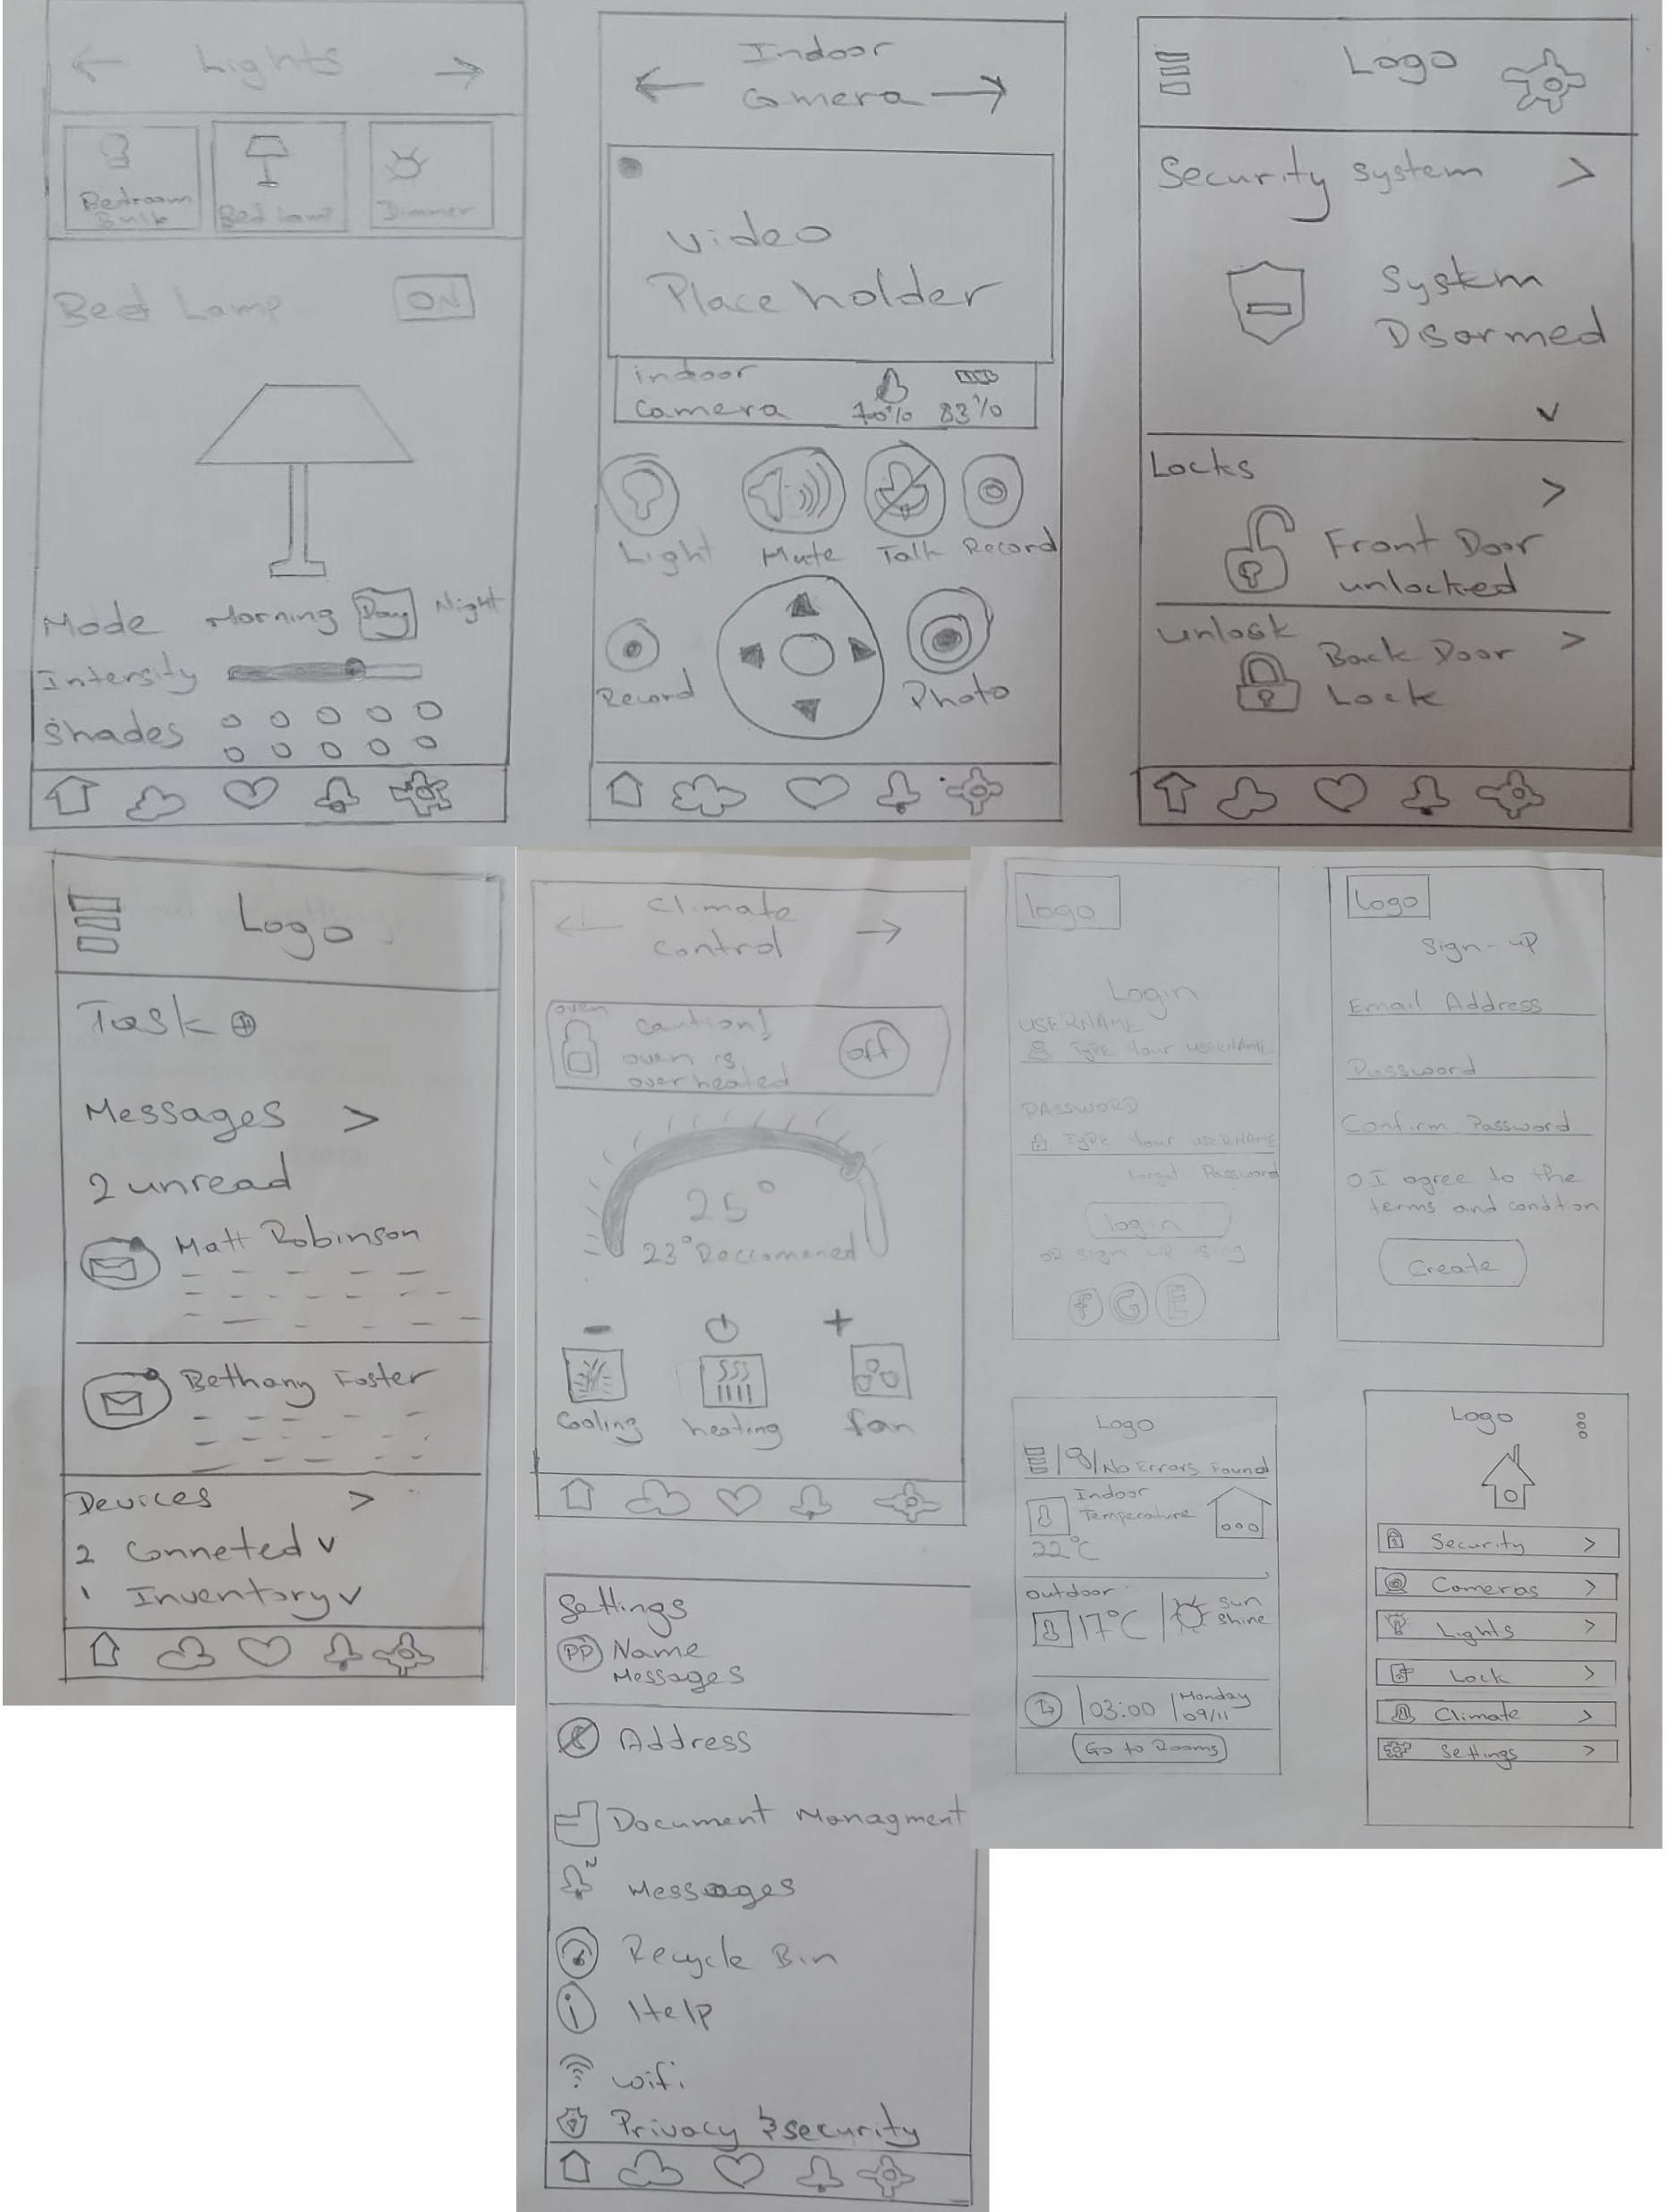 Lights
Bedroom
Bulb
Bed Lamp
Dimmer
Bed Lamp
ON
Mode Morning Day Night
Intensity
Shades
Indoor
Camera
video
Place holder
indoor
camera
70% 83%
Light Mute Talk Record
Record
Photo
Logo
Security system >
System
Disarmed
Locks
>
Front Door
unlocked
unlock
Back Door >
Lock
Logo
Task
Messages >
2 unread
Matt Robinson
Bethany Foster
Devices >
2 Conneted v
1 Inventory v
Climate
Control
oven
caution!
oven is
overheated
off
25°
23° Reccomened
- +
Cooling heating fan
Settings
PP Name
Messages
Address
Document Managment
2
Messages
Recycle Bin
Help
wifi
Privacy & security
logo
Login
USERNAME
TYPE Your USERNAME
PASSWORD
TYPE Your USERNAME
Forgot Password
login
OR sign up using
f G E
Logo
Sign-uP
Email Address
Password
Confirm Password
I agree to the
terms and condtion
Create
Logo
No Errors Found
Indoor
Temperature
22°C
outdoor
17°C
sun
shine
03:00
Monday
09/11
Go to Rooms
Logo
Security >
Cameras >
Lights >
Lock >
Climate >
Settings >